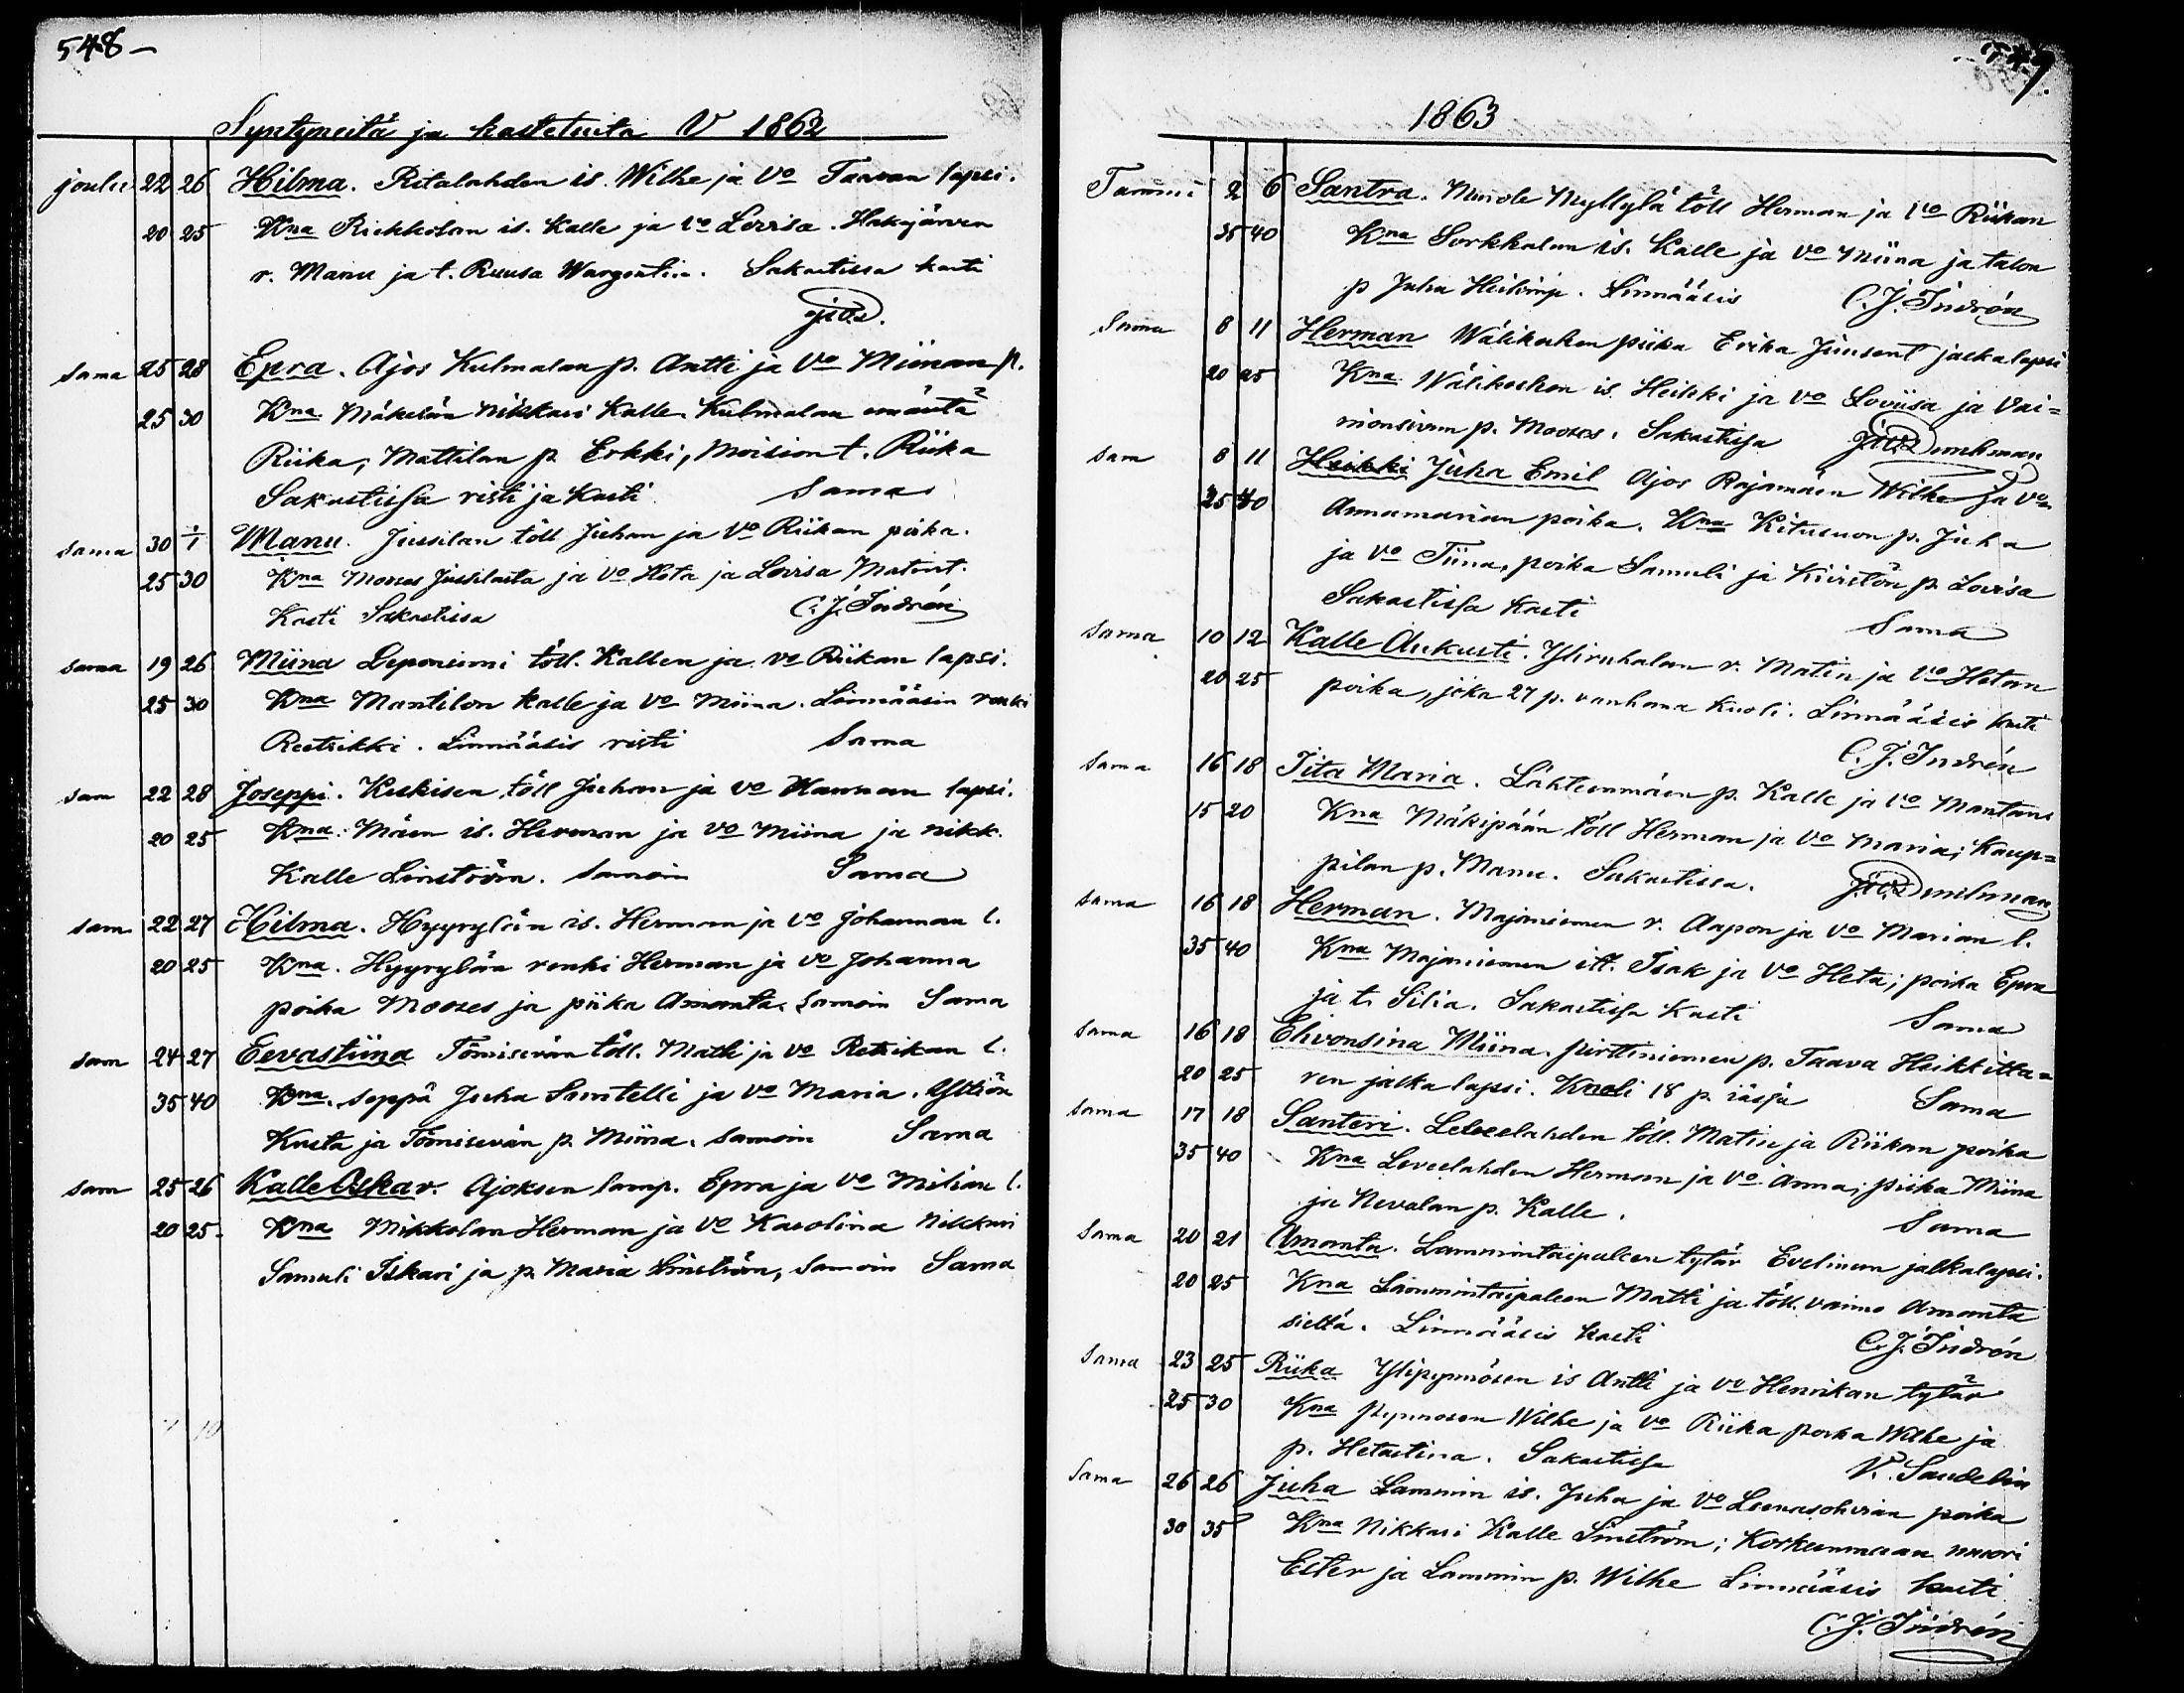 548 –
Syntyneitä ja kastetuita V 1862
joulu 22 26 Hilma. Ritalahden is. Wilhe ja Vo Taavan lapsi.
20 25 Kna Riekkolan is. Kalle ja vo Lovisa. Hakojärven
r. Manu ja t. Ruusa Wargentin. Sakastissa kasti
Sama 25 28 Epra. Ajos Kulmalan p. Antti ja Vo Miinan p.
25 30 Kna Mäkelän Nikkari Kalle. Kulmalan emäntä
Riika, Mattilan p. Erkki, Moision t. Riika
Sakastissa risti ja kasti Sama
Sama 30 1/1 Manu. Jussilan töll Juhan ja Vo Riikan poika.
25 30 Kna Mooses Jussilasta ja Vo Heta ja Lovisa Matint.
Kasti Sakastissa C. J. Indrén
Sama 19 26 Miina Leponiemi töll. Kallen ja vo Riikan lapsi.
25 30 Kna Mantilon Kalle ja Vo Miina. Linnääsin renki
Reetrikki. Linnääsis risti Sama
Sam 22 28 Joseppi. Keskisen töll Juhan ja vo Hannan lapsi.
20 25 Kna. Mäen is. Herman ja Vo Miina ja nikk.
Kalle Linström. Samoin Sama
Sam 22 27 Hilma. Hyyrylän is. Herman ja Vo Johannan l.
20 25 Kna. Hyyrylän renki Herman ja vo Johanna
poika Mooses ja piika Amanta. Samoin Sama
Sam 24 27 Eevastiina Tömisevän töll. Matti ja vo Retrikan l.
35 40 Kna. seppä Juha Santelli ja vo Maria.
Kusta ja Tömisevän p. Miina. Samoin Sama
Sam 25 26 Kalle Oskar. Ajoksen lamp. Epra ja Vo Milian l.
20 25. Kna Mikkolan Herman ja Vo Karolina Nikkari
Samuli Iskari ja p. Maria Linström, Samoin Sama
1863
Tammi 2 6 Santra. Myllylä töll Herman ja Vo Riikan
35 40 Kna Sorkkalan is. Kalle ja Vo Miina ja talon
p Juha Heikinp. Linnääsis C. J. Indrén
Sama 8 11 Herman Wälikosken piika Erika Juusent jalkalapsi
20 25 Kna. Wälikosken is. Heikki ja Vo Loviisa ja Vai=
nionsivun p. Mooses. Sakastissa
Sam 8 11 Heikki Juha Emil Ajos Rajamäen Wilhe ja Vo
25 30 Annamarian poika. Kna Kitusuon p. Juha
ja Vo Tiina, poika Samuli ja Kiviston p. Lovisa
Sakastissa kasti Sama
Sama 10 12 Kalle Aukusti. Yliruhalan r. Matin ja Vo Hetan
20 25 poika, joka 27 p. vanhana kuoli. Linnääsis kasti
C. J. Indrén
Sama 16 18 Iita Maria. Lähteenmäen p. Kalle ja Vo Mantans
15 20 Kna Mäkipään töll Herman ja Vo Maria; Kaup=
pilan p. Manu. Sakastissa.
Sama 16 18 Herman. Majaniemen r. Aapon ja Vo Marian l.
35 40 Kna Majaniemen itt. Isak ja Vo Heta; poika Epra
ja t. Silia. Sakastissa kasti Sama
Sama 16 18 Miina. Pirttiniemen p. Taava Heikkitta=
20 25 ren jalkalapsi. Kuoli 18 p. iässä Sama
Sama 17 18 Santeri. Leveelahden töll. Matin ja Riikan poika
35 40 Kna Leveelahden Herman ja Vo Anna; piika Miina
ja Nevalan p. Kalle. Sama
Sama 20 21 Amanta. Lammintaipaleen tytär Evelinan jalkalapsi.
20 25 Kna Lammintaipaleen Matti ja töll. vaimo Amanta
sieltä. Linnääsis kasti C. J. Indrén
Sama 23 25 Riika Ylipynnösen is Antti ja Vo Henrikan tytär
25 30 Kna Pynnösen Wilhe ja Vo Riika poika Wilhe ja
p. Hetastina. Sakastissa V. Sandelin
Sama 26 26 Juha Lammin is. Juha ja Vo Leenasohvian poika
30 35 Kna Nikkari Kalle Linström; Korkeenmaan nuori
Ester ja Lammin p. Wilhe Linnääsis kasti
C. J. Indrén